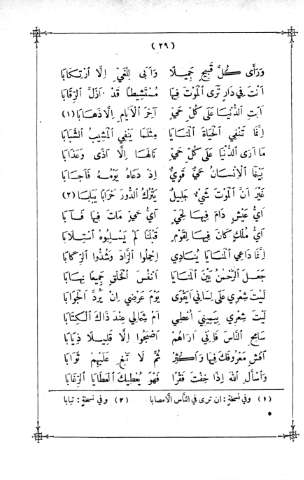 (٢٩)
وَرَأَى كُلَّ قَبِيحٍ جَمِيلًا وَأَبَى لِلْغَيِّ إِلَّا ارْتِكَابَا
أَنْتَ فِي دَارٍ تَرَى الْمَوْتَ فِيهَا مُسْتَشِيطًا قَدْ أَذَلَّ الرِّقَابَا
أَبَتِ الدُّنْيَا عَلَى كُلِّ حَيٍّ آخِرَ الْأَيَّامِ إِلَّا ذَهَابَا (١)
إِنَّمَا تَنْفِي الْحَيَاةَ الْمَنَايَا مِثْلَمَا يَنْفِي الْمَشِيبُ الشَّبَابَا
مَا أَرَى الدُّنْيَا عَلَى كُلِّ حَيٍّ نَالَهَا إِلَّا أَذًى وَعَذَابَا
بَيْنَمَا الْإِنْسَانُ حَيٌّ قَوِيٌّ إِذْ دَعَاهُ يَوْمُهُ فَأَجَابَا
غَيْرَ أَنَّ الْمَوْتَ شَيْءٌ جَلِيلٌ يَتْرُكُ الدُّورَ خَرَابًا يَبَابَا (٢)
أَيُّ عَيْشٍ دَامَ فِيهَا لِحَيٍّ أَيُّ حَيٍّ مَاتَ فِيهَا فَآبَا
أَيُّ مُلْكٍ كَانَ فِيهَا لِقَوْمٍ قَبْلَنَا لَمْ يُسْلَبُوهُ اسْتِلَابَا
إِنَّمَا دَاعِي الْمَنَايَا يُنَادِي احْمِلُوا الزَّادَ وَشُدُّوا الرِّكَابَا
جَعَلَ الرَّحْمٰنُ بَيْنَ الْمَنَايَا أَنْفُسَ الْخَلْقِ جَمِيعًا نِهَابَا
لَيْتَ شِعْرِي عَنْ لِسَانِي أَيَقْوَى يَوْمَ عَرْضِي أَنْ يَرُدَّ الْجَوَابَا
لَيْتَ شِعْرِي بِيَمِينِيَ أُعْطَى أَمْ شِمَالِي عِنْدَ ذَاكَ الْكِتَابَا
سَامِحِ النَّاسَ فَإِنِّي أَرَاهُمْ أَصْبَحُوا إِلَّا قَلِيلًا ذِيَابَا
أَفْشِ مَعْرُوفَكَ فِيهِمْ وَأَكْثِرْ ثُمَّ لَا تَبْغِ عَلَيْهِمْ ثَوَابَا
وَاسْأَلِ اللهَ إِذَا خِفْتَ فَقْرًا فَهْوَ يُعْطِيكَ الْعَطَايَا الرِّغَابَا
(١) وفي نسخة: (٢) وفي نسخة: تبابا